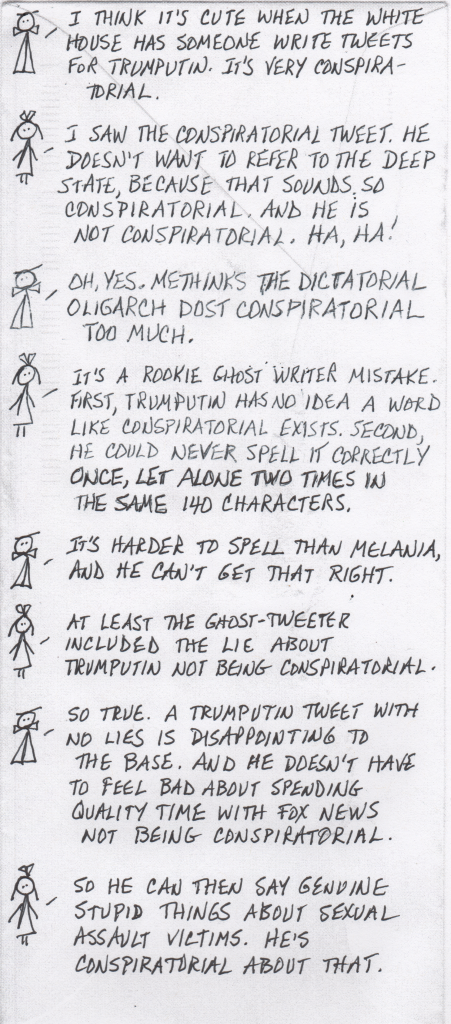 I THINK IT'S CUTE WHEN THE WHITE
HOUSE HAS SOMEONE WRITE TWEETS
FOR TRUMPUTIN. IT'S VERY CONSPIRA-
TORIAL.
I SAW THE CONSPIRATORIAL TWEET. HE
DOESN'T WANT TO REFER TO THE DEEP
STATE, BECAUSE THAT SOUNDS SO
CONSPIRATORIAL. AND HE IS
NOT CONSPIRATORIAL. HA, HA!
OH, YES. METHINKS THE DICTATORIAL
OLIGARCH DOST CONSPIRATORIAL
TOO MUCH.
IT'S A ROOKIE GHOST WRITER MISTAKE.
FIRST, TRUMPUTIN HAS NO IDEA A WORD
LIKE CONSPIRATORIAL EXISTS. SECOND,
HE COULD NEVER SPELL IT CORRECTLY
ONCE, LET ALONE TWO TIMES IN
THE SAME 140 CHARACTERS.
IT'S HARDER TO SPELL THAN MELANIA,
AND HE CAN'T GET THAT RIGHT.
AT LEAST THE GHOST-TWEETER
INCLUDED THE LIE ABOUT
TRUMPUTIN NOT BEING CONSPIRATORIAL.
SO TRUE. A TRUMPUTIN TWEET WITH
NO LIES IS DISAPPOINTING TO
THE BASE. AND HE DOESN'T HAVE
TO FEEL BAD ABOUT SPENDING
QUALITY TIME WITH FOX NEWS
NOT BEING CONSPIRATORIAL.
SO HE CAN THEN SAY GENUINE
STUPID THINGS ABOUT SEXUAL
ASSAULT VICTIMS. HE'S
CONSPIRATORIAL ABOUT THAT.